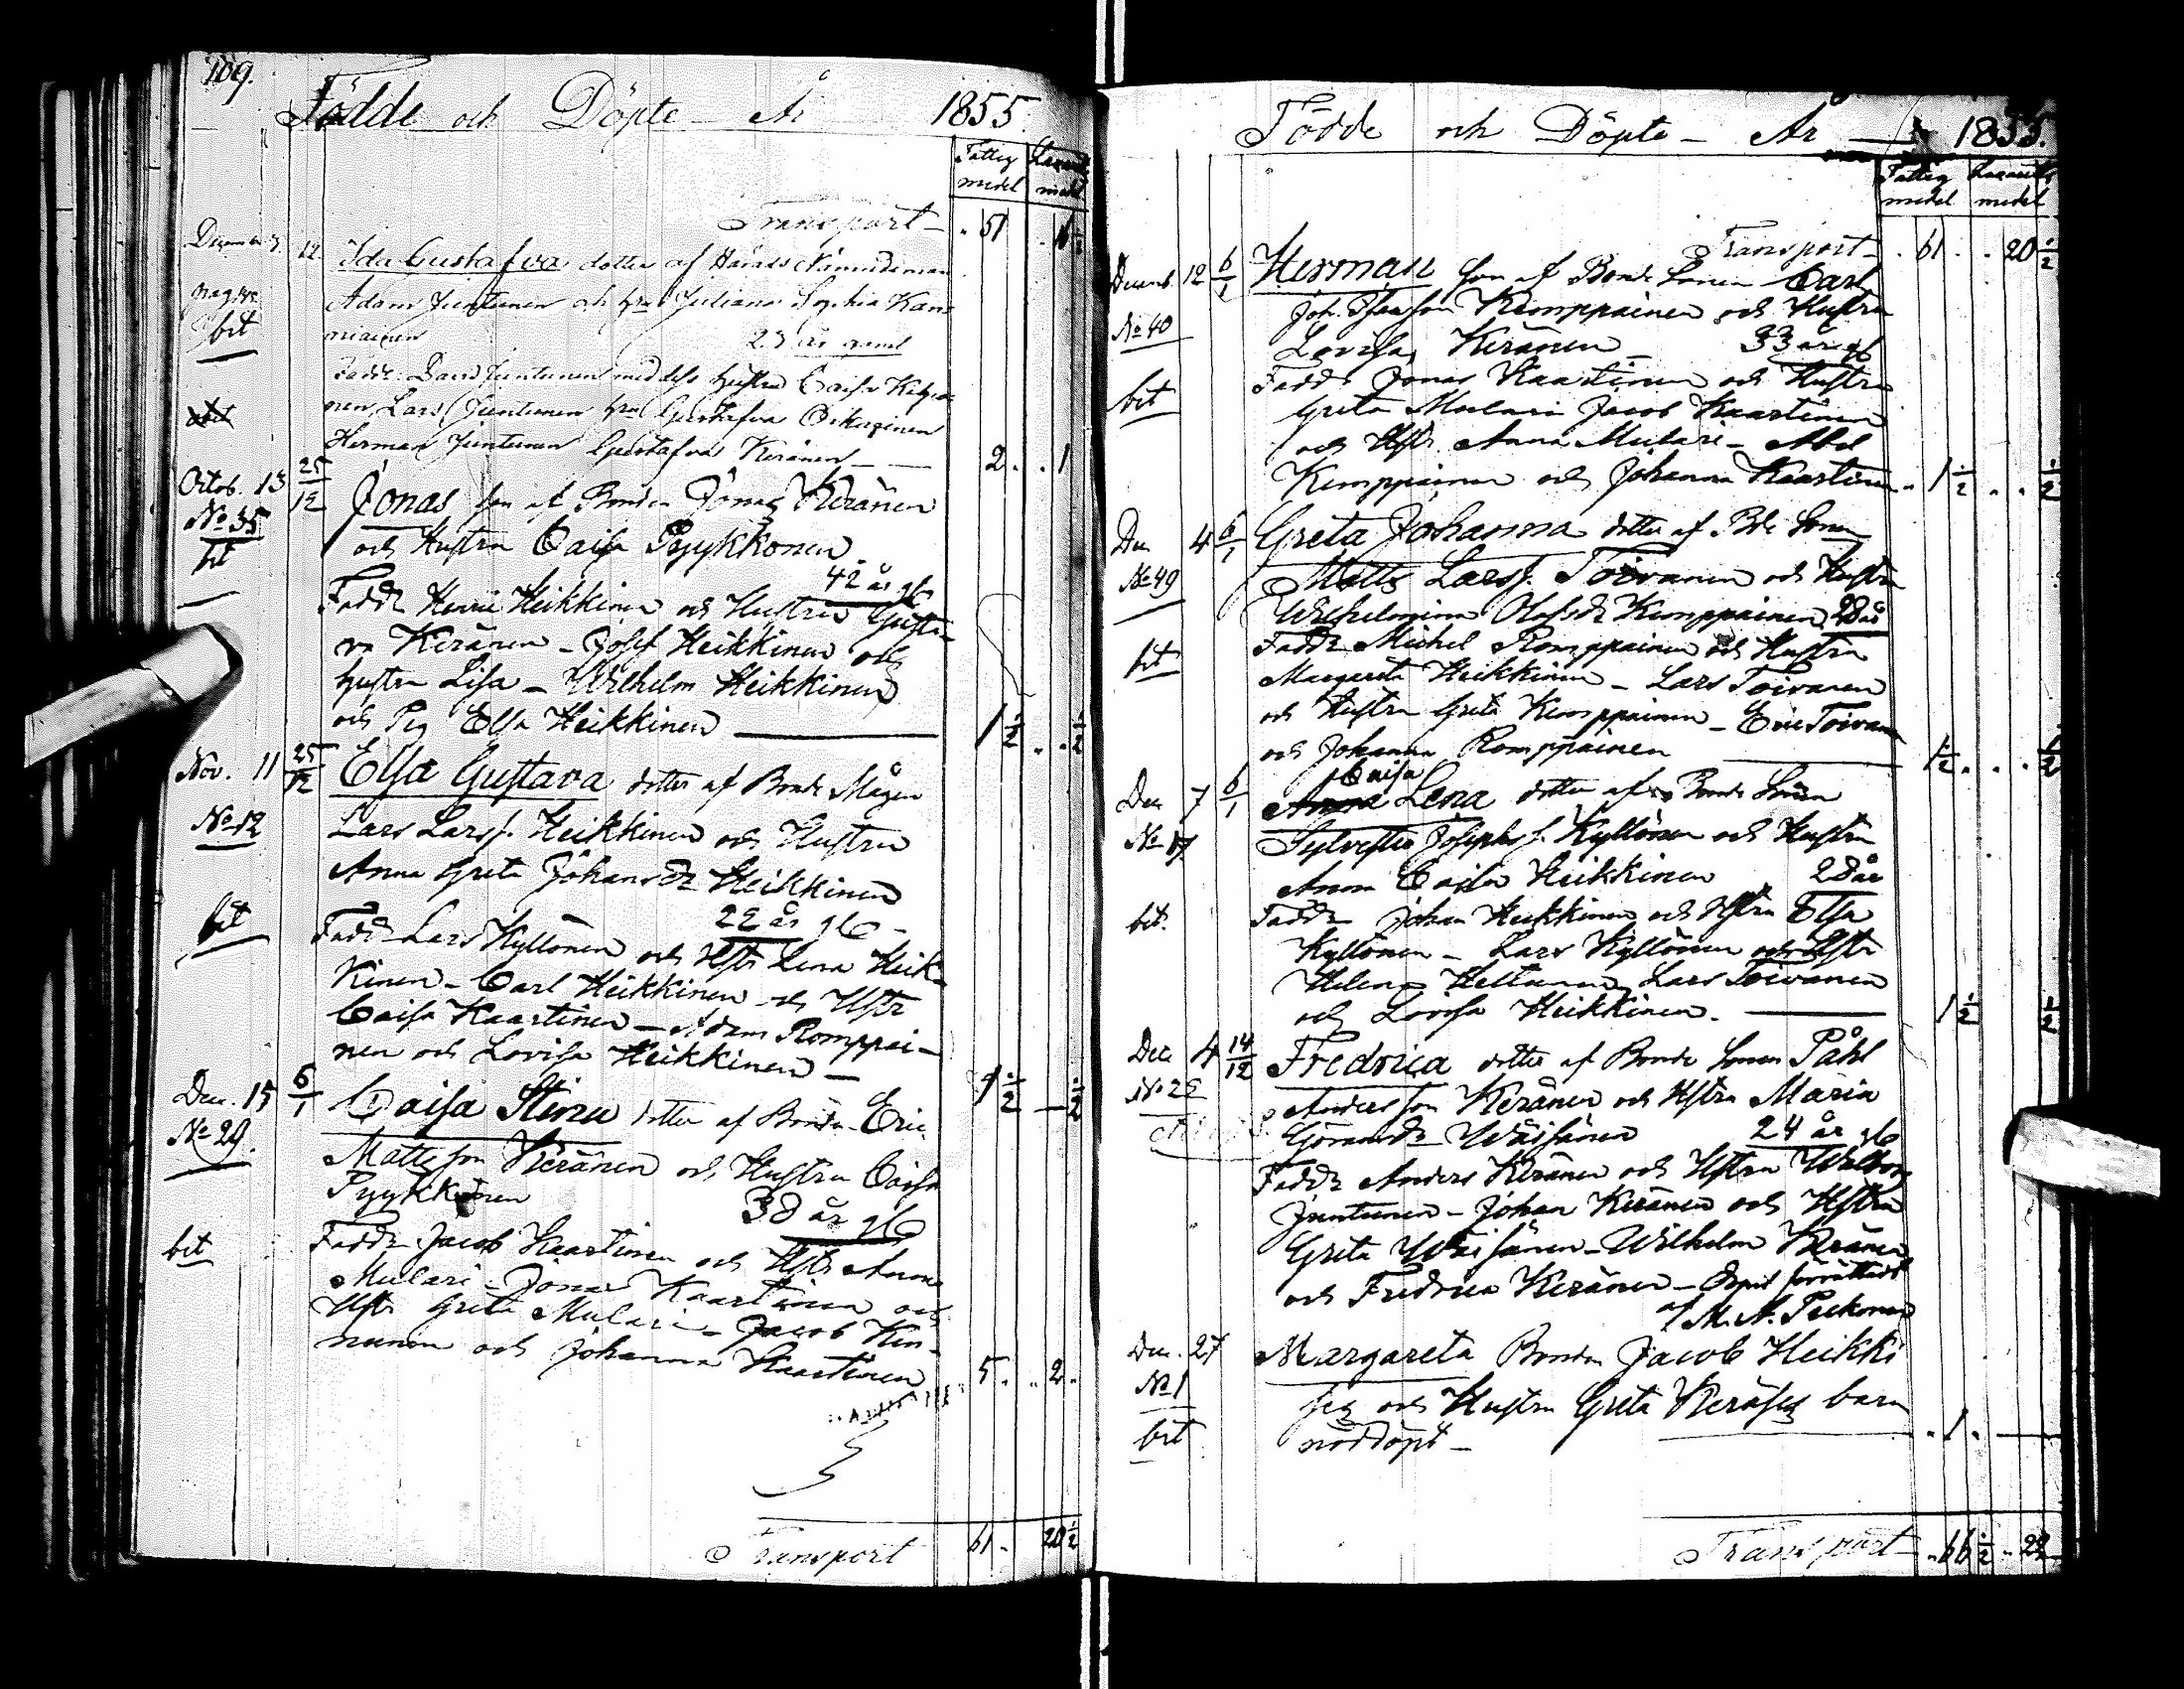 109.
Födde och Döpte År 1855
Fattig medel
medel
Transport 61
12. Ida Gustafva dotter af Härads Nämndeman
Adam Juntunen och hru Juliana Sophia Kan
niainen 23 år gamel
bet
Fadd. David Juntunen med dess hustru Caisa
nen, Lars Juntunen hru Gustafva
Herman Juntunen Gustafva Keränen 2. 1
Octob. 13 25/12 Jonas son af Bonden Jonas Keränen
No 35
och Hustru Caisa Pyykkönen
bet
42 år gl
Faddr Henric Heikkinen och Hustru Gusta-
va Keränen - Josef Heikkinen och
hustru Lisa - Wilhelm Heikkinen
och Pig Elsa Heikkinen 1 1/2 1/2
Nov. 11 25/12 Elsa Gustava dotter af Bonde Mågen
No 12
Lars Larss. Heikkinen och Hustru
Anna Greta Johansdr Heikkinen
bet
22 år gl
Faddr Lars Kyllönen och Hstr Lena Heik-
kinen - Carl Heikkinen och Hstr
Caisa Kaartinen - Adam Romppai-
nen och Lovisa Heikkinen 1 1/2 1/2
Dec. 15 6/1 Caisa Stina dotter af Bonden Eric
No 29.
Matts son Keränen och Hustru Caisa
Pyykkönen 38 år gl
bet
Faddr Jacob Kaartinen och Hstr Anna
Mulari - Jonas Kaartinen och
Hstr Greta Mulari - Jacob Kin-
nunen och Johanna Kaartinen 5. 2.
Transport 61. 20 1/2
Födde och Döpte - År 1855.
Fattig medel
medel
Transport 61. 20 1/2
Decemb. 12 6/1 Herman son af Bonde Sonen Carl
Joh. Kemppainen och Hustru
No 40
Lovisa Keränen 33 år gl
Faddr Jonas Kaartinen och Hustru
bet
Greta Mulari Jacob Kaartinen
och Hstr. Anna Mulari - Abel
Kemppainen och Johanna Kaartinen 1 1/2 1/2
Dec 4 6/1 Greta Johanna dotter af Bde Sonen
No 49
Matts Larss. Toivanen och Hustru
Wilhelmina Olofsdr Kemppainen 28 år
Faddr Michel Romppainen och Hustru
bet
Margareta Heikkinen - Lars Toivanen
och Hustru Greta Kemppainen - Eric Toivanen
och Johanna Romppainen 1 1/2 1/2
Caisa
Dec 7 6/1 Anna Lena dotter af Bonde Sonen
No 17
Sylvester Josephs s. Kyllönen och Hustru
Anna Caisa Heikkinen 28 år
bet.
Faddr Johan Heikkinen och Hstru Elsa
Kyllönen - Lars Kyllönen och Hstr
Helena Heikkinen, Lars Toivanen
och Lovisa Heikkinen. 1 1/2 1/2
Dec 4 14/12 Fredrica dotter af Bonde Sonen Påhl
No 22
Anders son Keränen och Hstru Maria
Göransdr Wäisänen 24 år gl
Faddr Anders Keränen och Hstru Walborg
Juntunen - Johan Keränen och Hstru
Greta Wäisänen - Wilhelm Keränen
och Fredrica Keränen - Dopet förrättadt
af M. N. Peckonen
Dec. 27 Margareta Bonden Jacob Heikki
No 1
sen och Hustru Greta barn
bet
nöddöpt - 1.
Transport 66 1/2 22